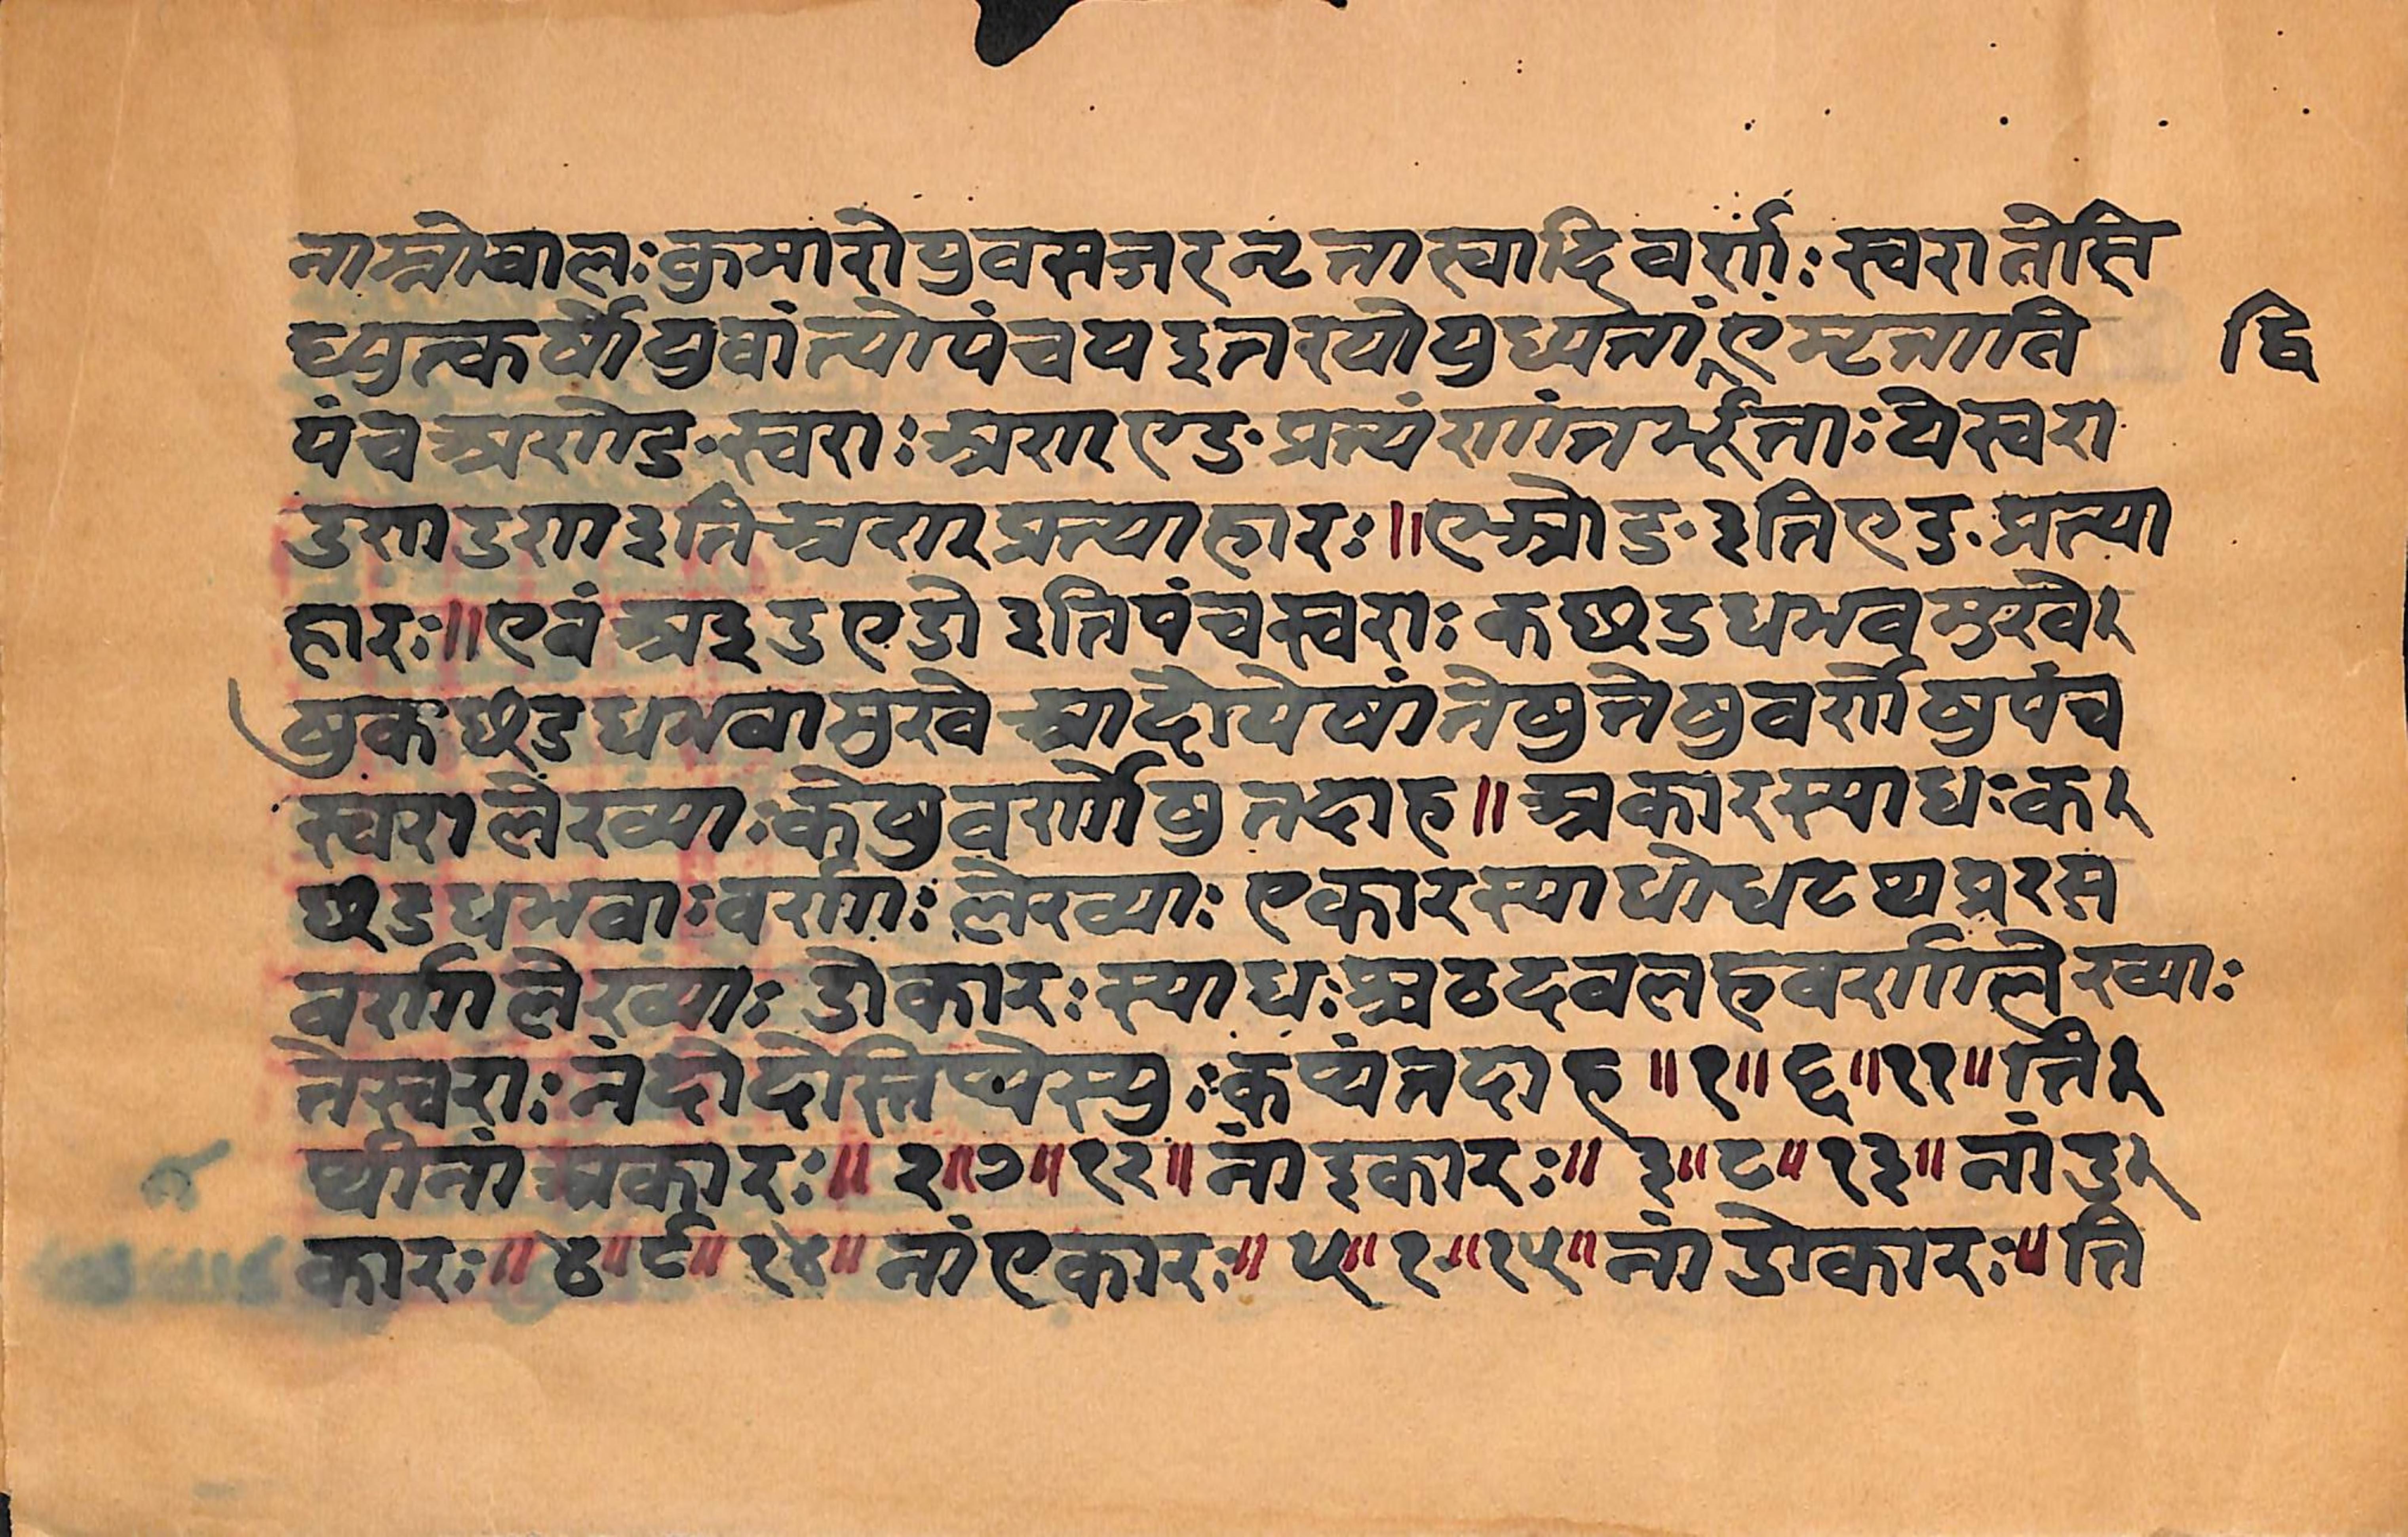 नाम्नोवालः कुमारोयुवसजरन्टनास्वादिवर्णाः स्वरातेस्ति
ध्युत्कर्षोयुवांत्योपंचपइनरयोयुध्यनांएंम्टनााति
पंचअराोङ् स्वराः अराएङ् प्रत्यंराांतर्म्हूताः येस्वरा
उराउरा इति अरा प्रत्याहारः ॥ एओङ् इति एङ् प्रत्या
हारः ॥ एवं अइउएओ इति पंचस्वराः कछडधभव मुखे
षुकछडधभवामुखे आदौयेषांतेषुतेषुवर्णेषुपंच
स्वरालेख्याः केषुवर्णेषु तदाह ॥ अकारस्याधः क
छडधभवाः वर्णाः लेख्याः एकारस्याधोघटथप्ररस
वर्णालेख्याः ओकारः स्याधः श्चठदबलहवर्णालेख्याः
तेस्वराः नंदादेस्तिथ्येस्युः कथंतदाह ॥ १ ॥ ६ ॥ ११ ॥ ति
थीनां अकारः ॥ २ ॥ ७ ॥ १२ ॥ नां इकारः ॥ ३ ॥ ८ ॥ १३ ॥ नां उ
कारः ॥ ४ ॥ ९ ॥ १४ ॥ नां एकारः ॥ ५ ॥ १० ॥ १५ ॥ नां ओकारः ॥ ति
द्वि